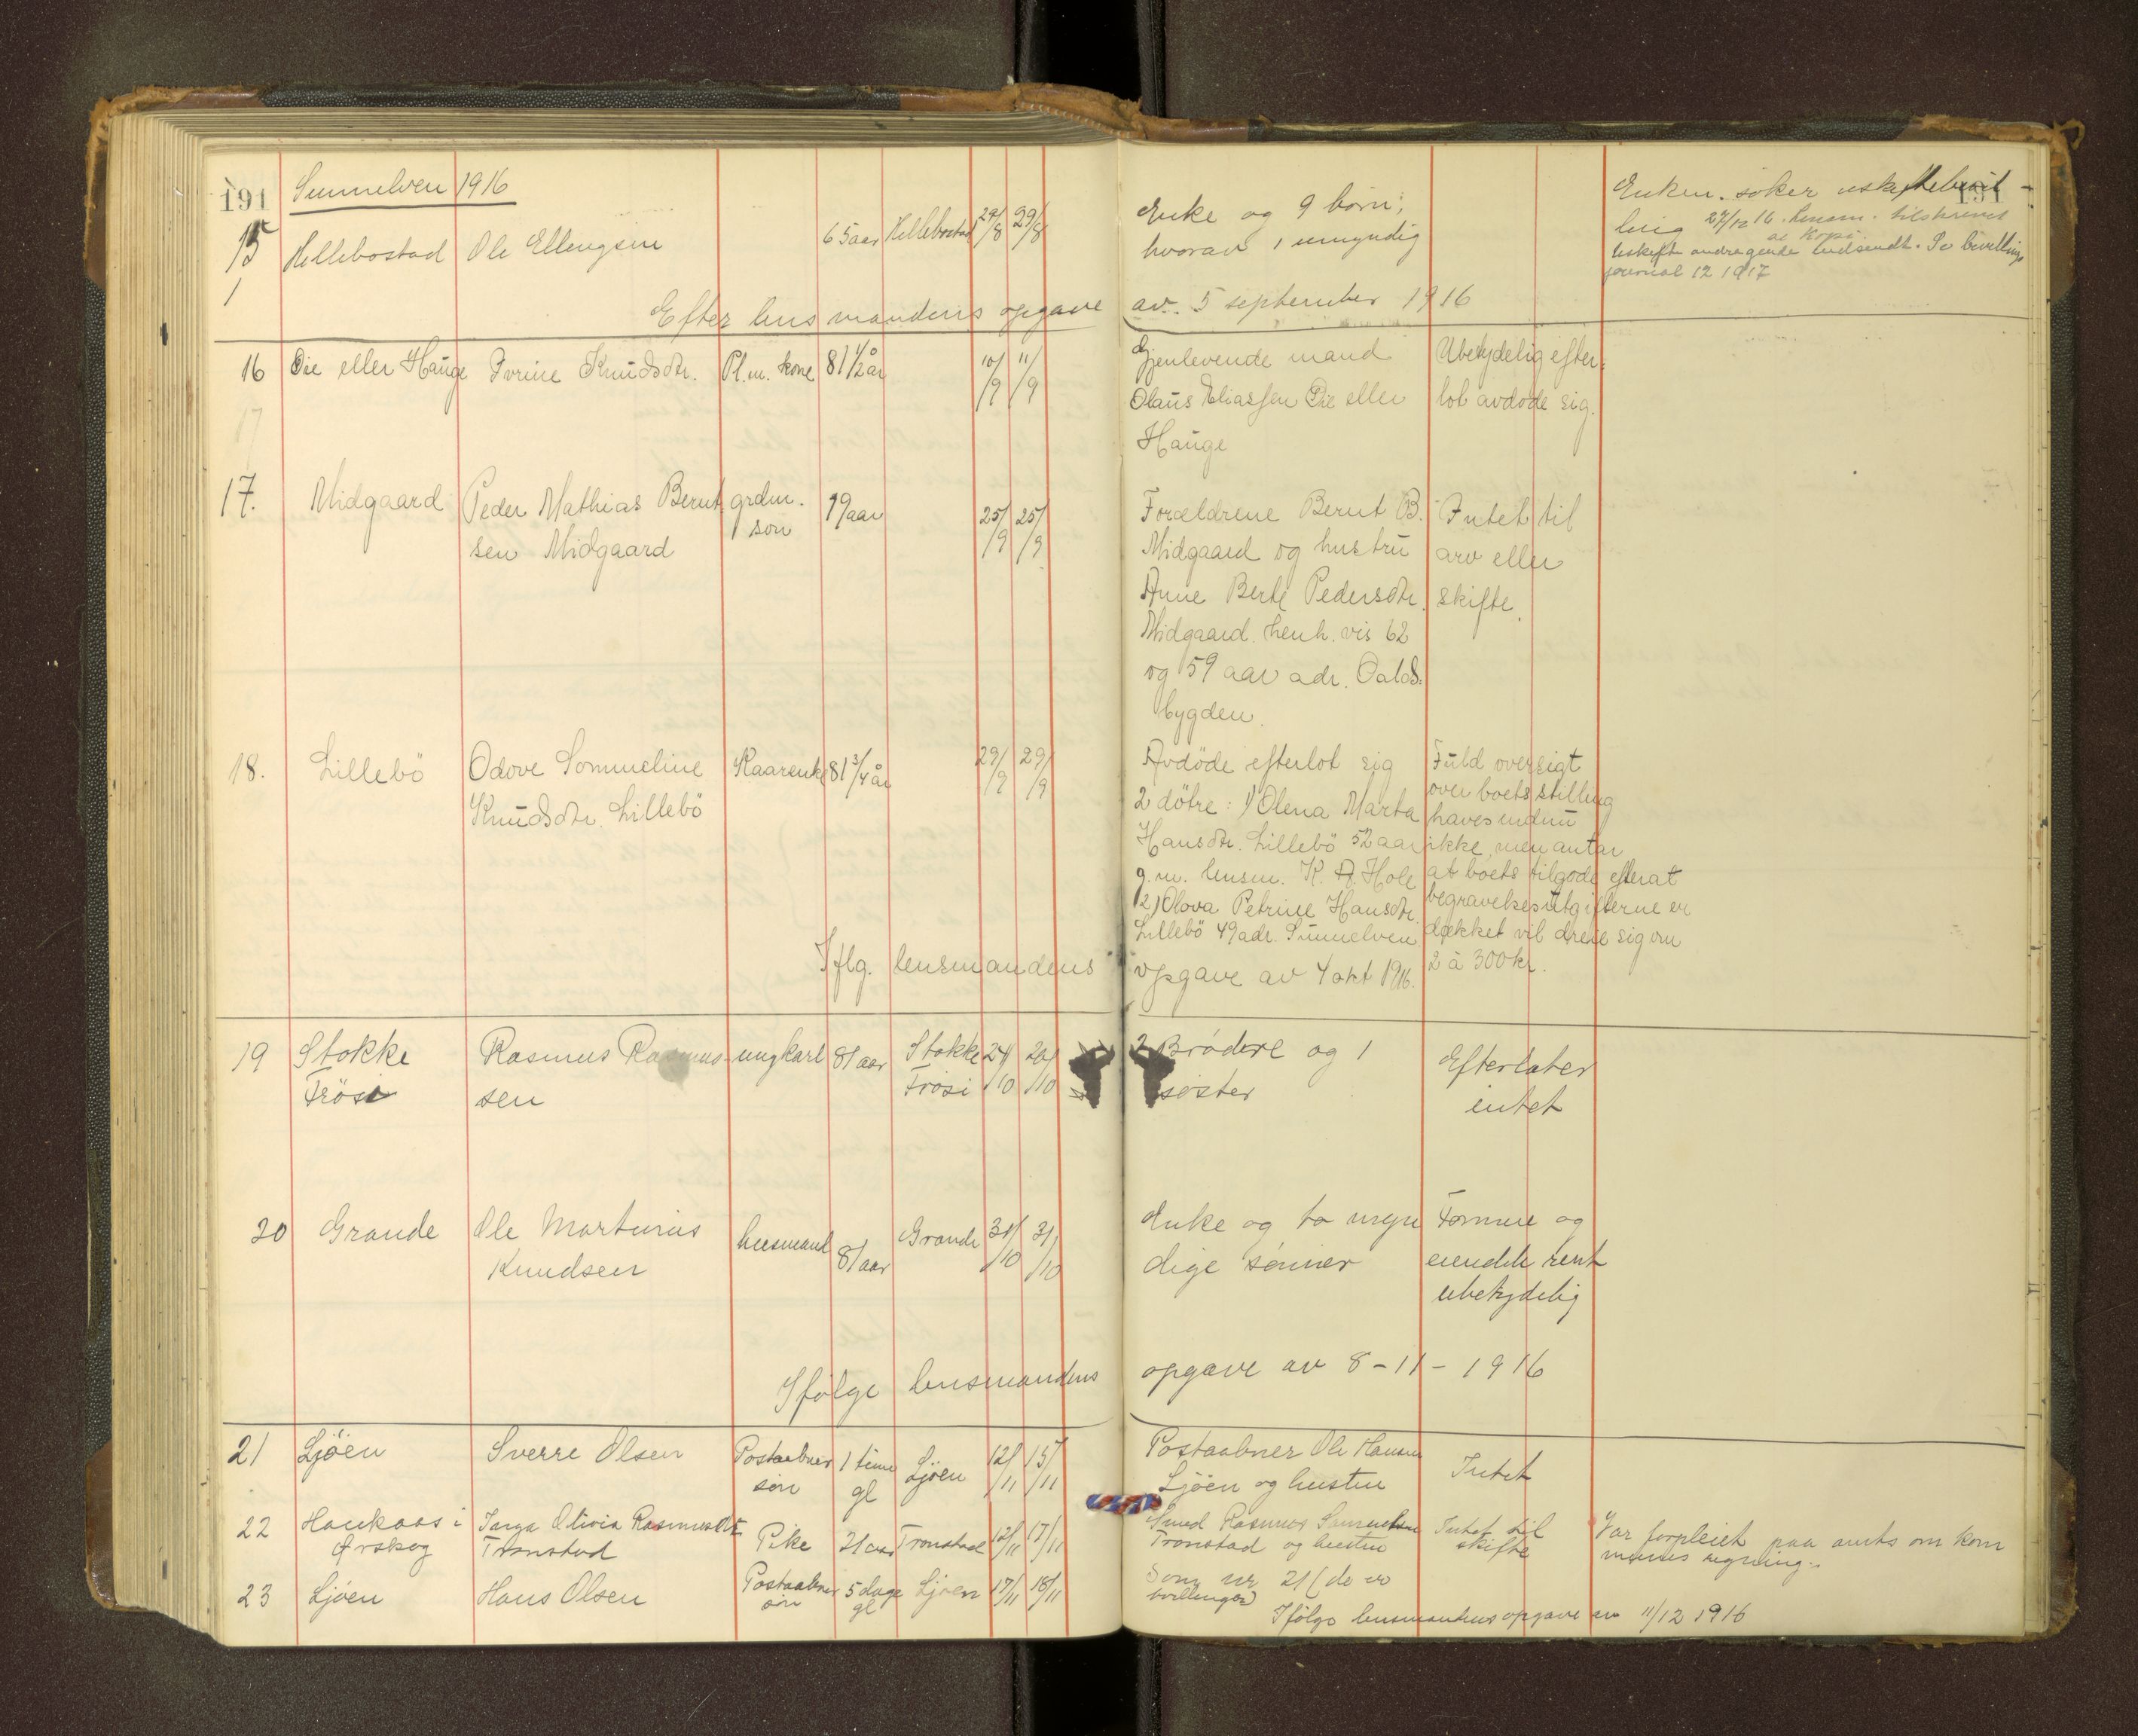 191
Sunnelven 1916
15 Hellebostad Ole Ellingsen 65 aar Hellebostad 27/8 29/8 Enke og 9 börn;
hvorav 1 umyndig
Enken söker uskiftebevil-
ling 27/12 16. Lensm. tilskrevet
ae kopi.
Uskifte andragende indsendt. Se bevillings
journal 12 1917
191
1
Efter lensmandens opgave av 5 september 1916
16 Öie eller Hauge Ivrine Knudsdtr. Pl.m. kone 81 1/2 år 10/9 11/9 Gjenlevende mand Ubetydelig efter=
Olaus Eliassen Öie eller lot avdöde sig.
Hauge
17
17. Midgaard Peder Mathias Bernt grdm. 19 aar 25/9 25/9 Forældrene Bernt B. Intet til
sen Midgaard sön Midgaard og hustru arv eller
Anne Berte Pedersdtr. skifte.
Midgaard. henh. vis 62
og 59 aar adr. Oalds=
bygden.
18. Lillebö Odove Sommeline Kaarenke 81 3/4 år 29/9 29/9 Avdöde efterlot sig Fuld oversigt
Knudsdtr. Lillebö 2 dötre: 1) Olena Marta over boets stilling
haves endnu
Hansdtr. Lillebö 52 aar ikke, men antar
g.m. lensm. K. A Hole at boets tilgode efterat
2) Olova Petrine Hansdtr. begravelsesutgifterne er
Lillebö 49 adr. Sunnelven dækket vil dreie sig om
2 à 300 kr.
Iflg. lensmandens opgave av 4 okt 1916.
19 Stokke Rasmus Rasmus- ungkarl 81 aar Stokke 24/10 26/10 2 Brödre og 1 Efterlater
Frösi sen Frösi söster intet
20 Grande Ole Martinius husmand 81 aar Grande 31/10 31/10 Enke og to myn Formue og
Knudsen dige sönner eiendele rent
ubetydelig
Ifölge lensmandens opgave av 8-11-1916
21 Ljöen Sverre Olsen Postaabner 1 time Ljöen 12/11 15/11 Postaabner Ole Hansen Intet
sön gl Ljöen og hustru
22 Haukaas i Inga Olivia Rasmusdtr Pike 21 aar Tronstad 12/11 17/11 Smed Rasmus Samuelsen Intet til Var forpleiet paa amts om kom
Örskog Tronstad Tronstad og hustru skifte munes regning.
23 Ljöen Hans Olsen Postaabner 5 dage Ljöen 17/11 18/11 Som nr 21 (de er
sön gl tvillinger)
Ifölge lensmandens opgave av 11/12 1916